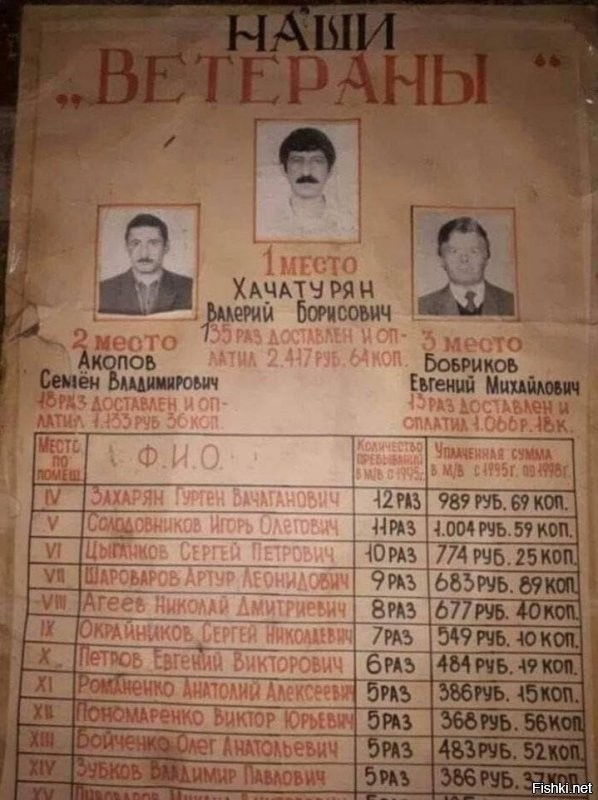 НАШИ
„ВЕТЕРАНЫ“
1 МЕСТО
ХАЧАТУРЯН
ВАЛЕРИЙ БОРИСОВИЧ
135 РАЗ ДОСТАВЛЕН И ОП-
ЛАТИЛ 2.417 РУБ. 64 КОП.
2 МЕСТО
АКОПОВ
СЕМЁН ВЛАДИМИРОВИЧ
18 РАЗ ДОСТАВЛЕН И ОП-
ЛАТИЛ 1.133 РУБ 36 КОП.
3 МЕСТО
БОБРИКОВ
ЕВГЕНИЙ МИХАЙЛОВИЧ
13 РАЗ ДОСТАВЛЕН И
ОПЛАТИЛ 1.066 Р. 18 К.
МЕСТО ПО ПОМЕЩ. Ф.И.О. КОЛИЧЕСТВО ПРЕБЫВАНИЙ В М/В С 1995г. УПЛАЧЕННАЯ СУММА В М/В С 1995г. ПО 1998г.
IV ЗАХАРЯН ГУРГЕН ВАЧАГАНОВИЧ 12 РАЗ 989 РУБ. 69 КОП.
V СОЛОДОВНИКОВ ИГОРЬ ОЛЕГОВИЧ 11 РАЗ 1.004 РУБ. 59 КОП.
VI ЦЫГАНКОВ СЕРГЕЙ ПЕТРОВИЧ 10 РАЗ 774 РУБ. 25 КОП.
VII ШАРОВАРОВ АРТУР ЛЕОНИДОВИЧ 9 РАЗ 683 РУБ. 89 КОП.
VIII АГЕЕВ НИКОЛАЙ ДМИТРИЕВИЧ 8 РАЗ 677 РУБ. 40 КОП.
IX ОКРАЙНИКОВ СЕРГЕЙ НИКОЛАЕВИЧ 7 РАЗ 549 РУБ. 10 КОП.
X ПЕТРОВ ЕВГЕНИЙ ВИКТОРОВИЧ 6 РАЗ 484 РУБ. 19 КОП.
XI РОМАНЕНКО АНАТОЛИЙ АЛЕКСЕЕВИЧ 5 РАЗ 386 РУБ. 15 КОП.
XII ПОНОМАРЕНКО ВИКТОР ЮРЬЕВИЧ 5 РАЗ 368 РУБ. 56 КОП.
XIII БОЙЧЕНКО ОЛЕГ АНАТОЛЬЕВИЧ 5 РАЗ 483 РУБ. 52 КОП.
XIV ЗУБКОВ ВЛАДИМИР ПАВЛОВИЧ 5 РАЗ 386 РУБ. 37 КОП.
XV
Fishki.net